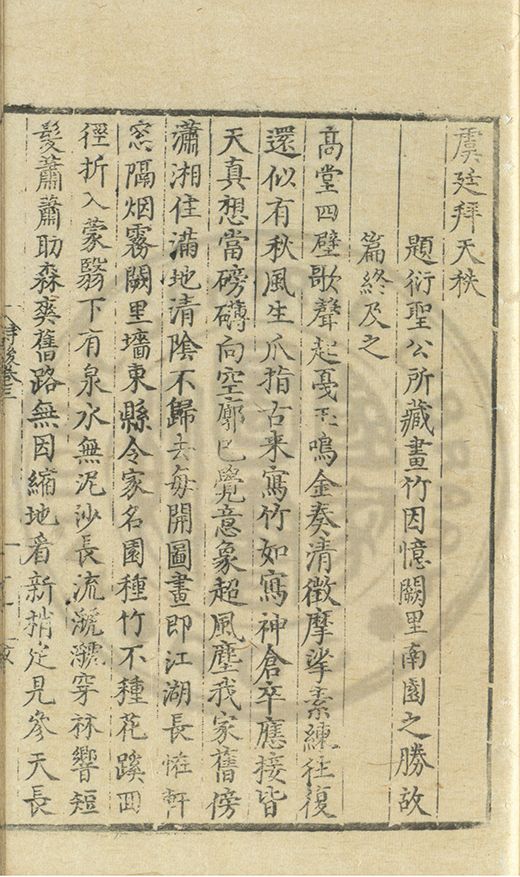 虞廷拜天秩
題衍聖公所藏畫竹因憶闕里南園之勝故
篇終及之
高堂四壁歌聲起戞玉鳴金奏清徵摩挲素練往復
還似有秋風生爪指古來寫竹如寫神倉卒應接皆
天真想當磅礴向空廓已覺意象超風塵我家舊傍
瀟湘住滿地清陰不歸去每開圖畫即江湖長恠軒
窓隔烟霧闕里墻東縣令家名園種竹不種花蹊回
徑折入蒙翳下有泉水無泥沙長流㶁㶁穿林響短
髮蕭蕭助森爽舊路無因縮地看新梢定見參天長